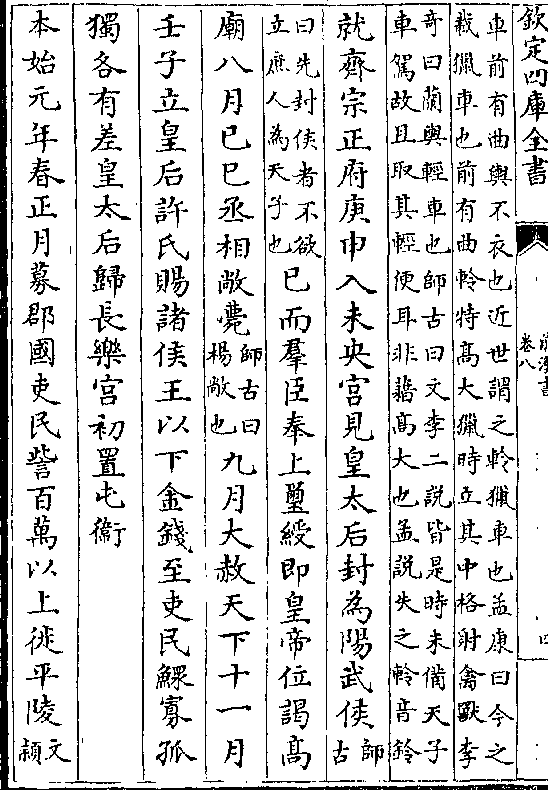 欽定四庫全書
卷八
車前有曲輿不衣也近世謂之軨獵車也孟康曰今之
載獵車也前有曲軨特髙大獵時立其中格射禽獸李
奇曰蘭輿輕車也師古曰文李二説皆是時未備天子
車駕故且取其輕便耳非藉髙大也孟説失之軨音鈴
就齊宗正府庚申入未央宫見皇太后封為陽武侯師古
曰先封侯者不欲立庶人為天子也已而羣臣奉上璽綬即皇帝位謁髙
廟八月已巳丞相敞薨師古曰楊敞也九月大赦天下十一月
壬子立皇后許氏賜諸侯王以下金錢至吏民鰥寡孤
獨各有差皇太后歸長樂宫初置屯衛
本始元年春正月募郡國吏民訾百萬以上徙平陵文頴